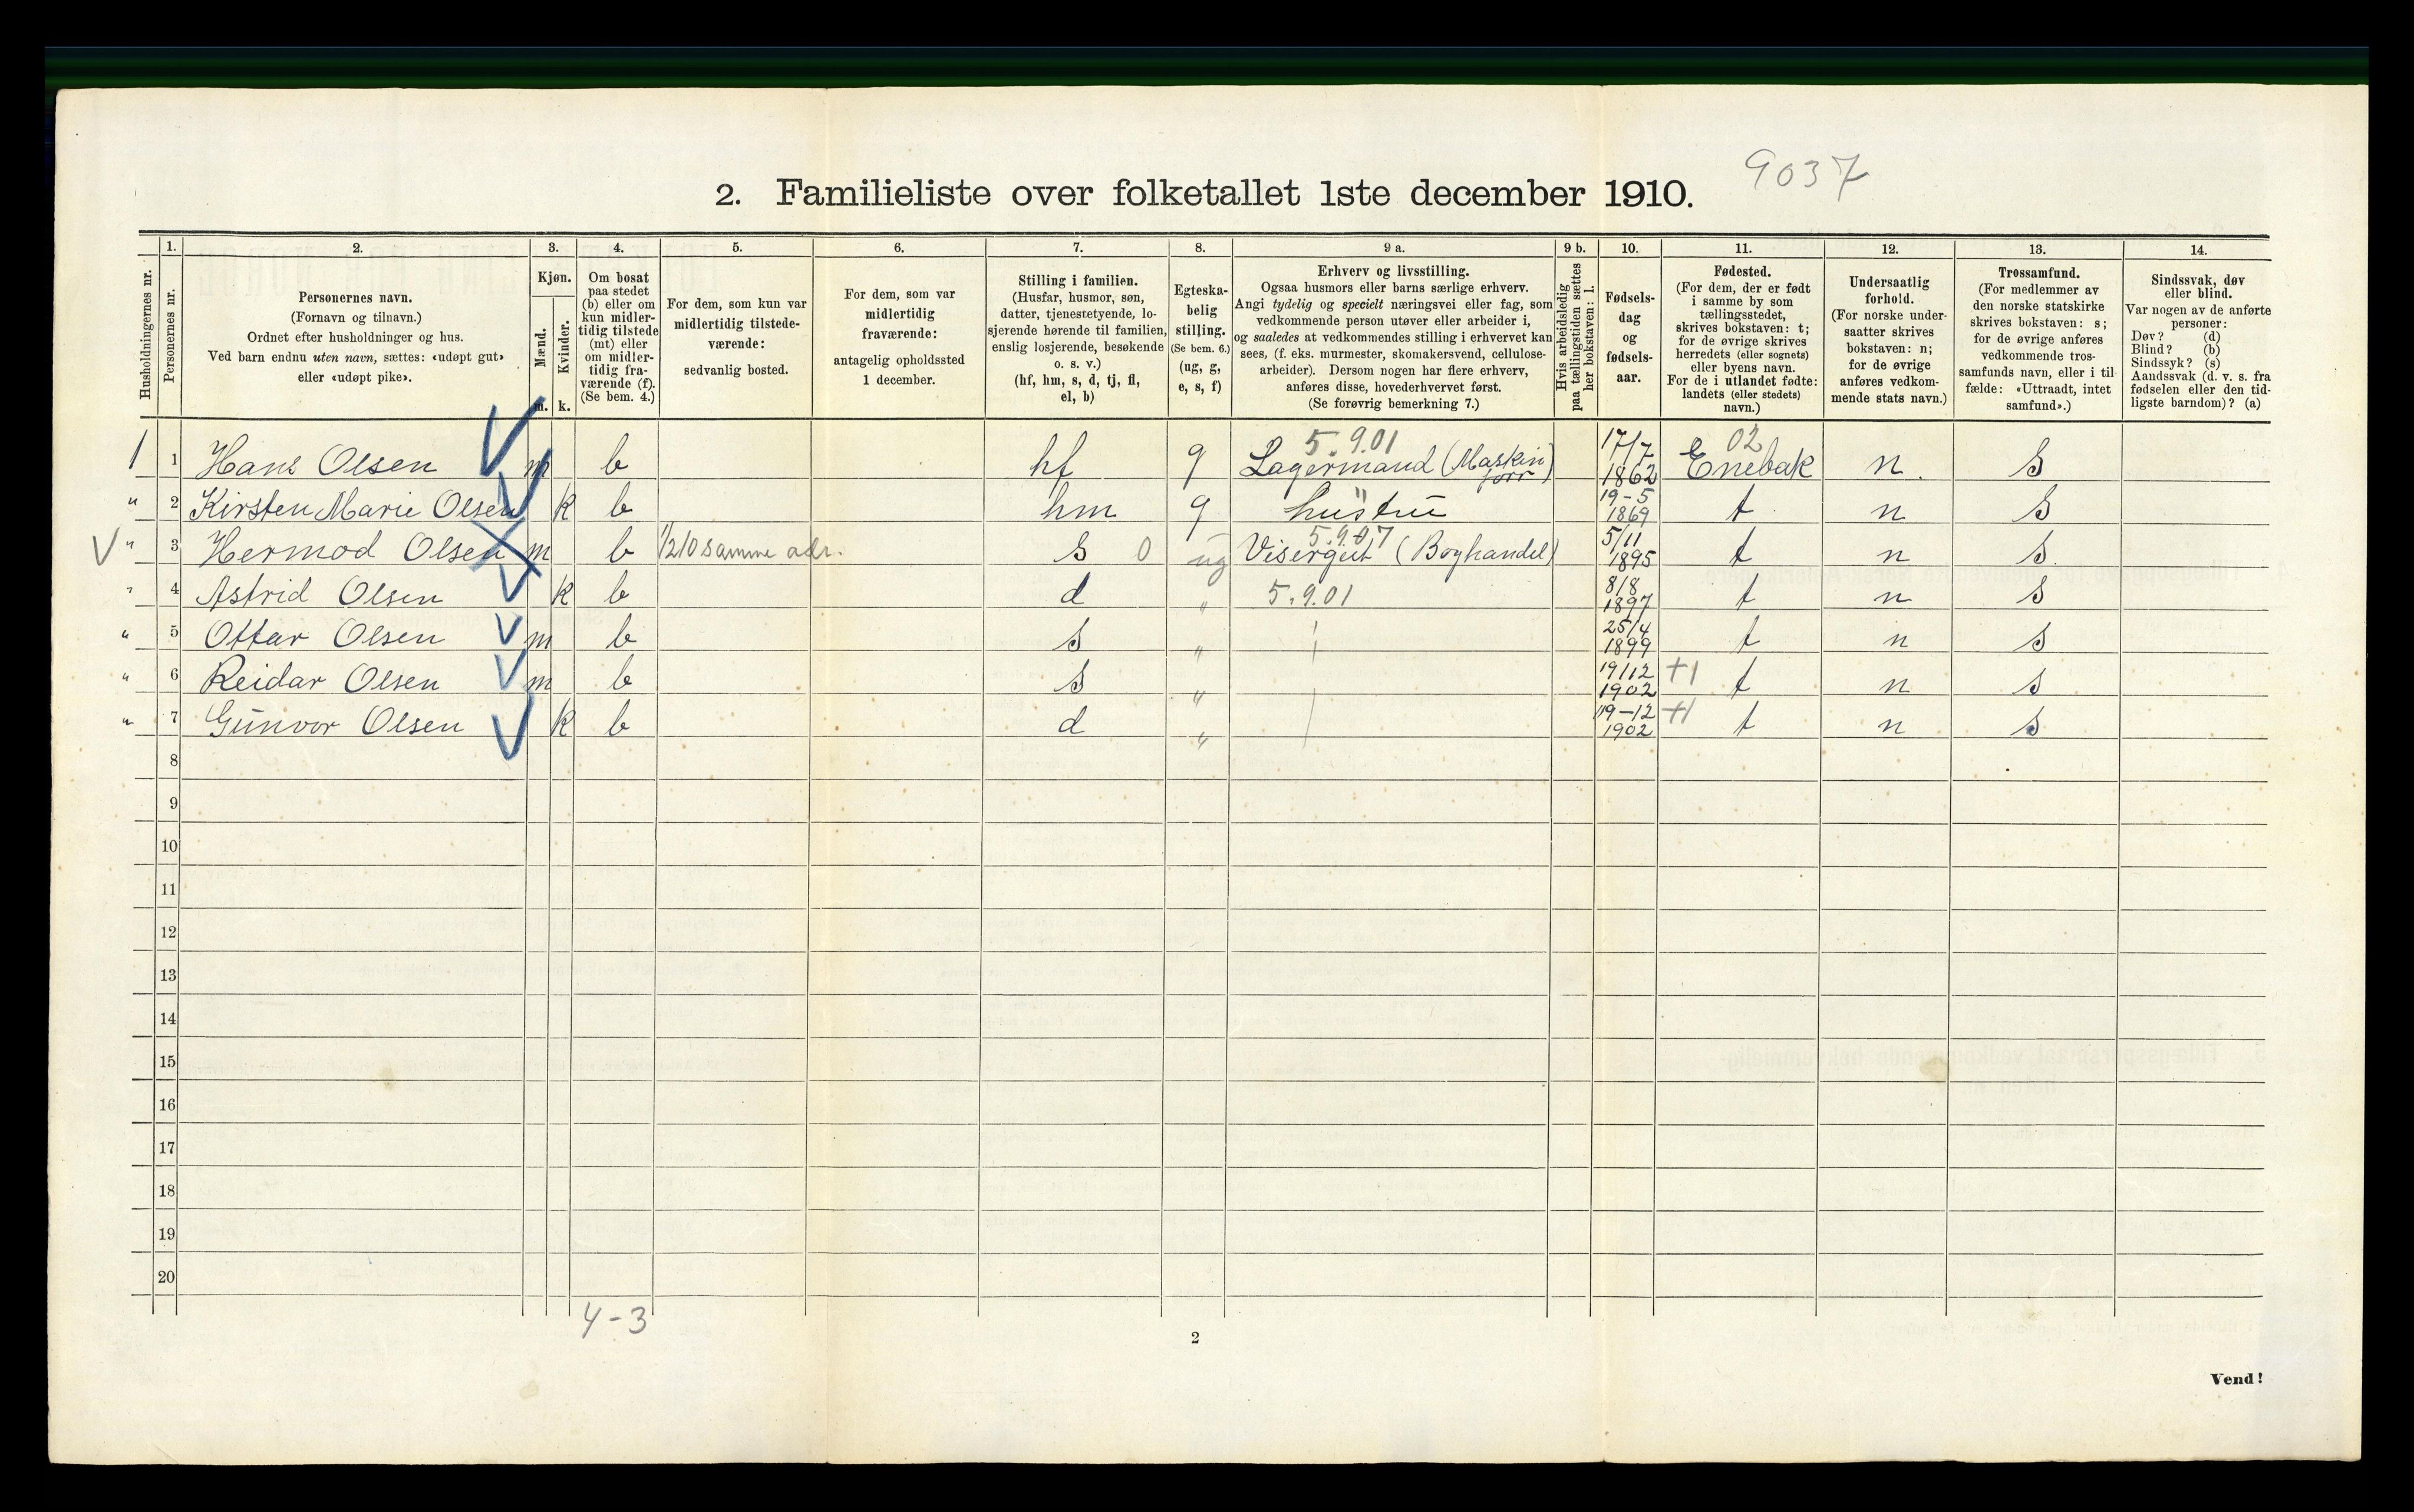 9037
2. Familieliste over folketallet 1ste december 1910.
1. 2. 3. 4. 5. 6. 7. 8. 9 a. 9 b. 10. 11. 12. 13. 14.
Husholdningernes nr.
Personernes nr.
Personernes navn.
(Fornavn og tilnavn.)
Ordnet efter husholdninger og hus.
Ved barn endnu uten navn, sættes: «udøpt gut»
eller «udøpt pike».
Kjøn.
Mænd.
Kvinder.
m. k.
Om bosat
paa stedet
(b) eller om
kun midler-
tidig tilstede
(mt) eller
om midler-
tidig fra-
værende (f).
(Se bem. 4.)
For dem, som kun var
midlertidig tilstede-
værende:
sedvanlig bosted.
For dem, som var
midlertidig
fraværende:
antagelig opholdssted
1 december.
Stilling i familien.
(Husfar, husmor, søn,
datter, tjenestetyende, lo-
sjerende hørende til familien,
enslig losjerende, besøkende
o. s. v.)
(hf, hm, s, d, tj, fl,
el, b)
Egteska-
belig
stilling.
(Se bem. 6.)
(ug, g,
e, s, f)
Erhverv og livsstilling.
Ogsaa husmors eller barns særlige erhverv.
Angi tydelig og specielt næringsvei eller fag, som
vedkommende person utøver eller arbeider i,
og saaledes at vedkommendes stilling i erhvervet kan
sees, (f. eks. murmester, skomakersvend, cellulose-
arbeider). Dersom nogen har flere erhverv,
anføres disse, hovederhvervet først.
(Se forøvrig bemerkning 7.)
Hvis arbeidsledig
paa tællingstiden sættes
her bokstaven: l.
Fødsels-
dag
og
fødsels-
aar.
Fødested.
(For dem, der er født
i samme by som
tællingsstedet,
skrives bokstaven: t;
for de øvrige skrives
herredets (eller sognets)
eller byens navn.
For de i utlandet fødte:
landets (eller stedets)
navn.)
Undersaatlig
forhold.
(For norske under-
saatter skrives
bokstaven: n;
for de øvrige
anføres vedkom-
mende stats navn.)
Trossamfund.
(For medlemmer av
den norske statskirke
skrives bokstaven: s;
for de øvrige anføres
vedkommende tros-
samfunds navn, eller i til-
fælde: «Uttraadt, intet
samfund».)
Sindssvak, døv
eller blind.
Var nogen av de anførte
personer:
Døv? (d)
Blind? (b)
Sindssyk? (s)
Aandssvak (d. v. s. fra
fødselen eller den tid-
ligste barndom)? (a)
5.9.01 02
1 1 Hans Olsen m b hf g Lagermand (Maskinforr) 17/7 1862 Enebak n. S
" 2 Kirsten Marie Olsen k b hm g hüstrü 19-5 1869 t n S
5.9.07
" 3 Hermod Olsen m b 1/210 samme adr. s 0 ug Visergut (Boghandel) 5/11 1895 t n S
" 4 Astrid Olsen k b d " 5.9.01 8/8 1897 t n S
" 5 Ottar Olsen m b s " 25/4 1899 t n S
" 6 Reidar Olsen m b s " 19/12 1902 +1 t n S
" 7 Günvor Olsen k b d " 19-12 1902 +1 t n S
8
9
10
11
12
13
14
15
16
17
18
19
20
4-3
2
Vend!